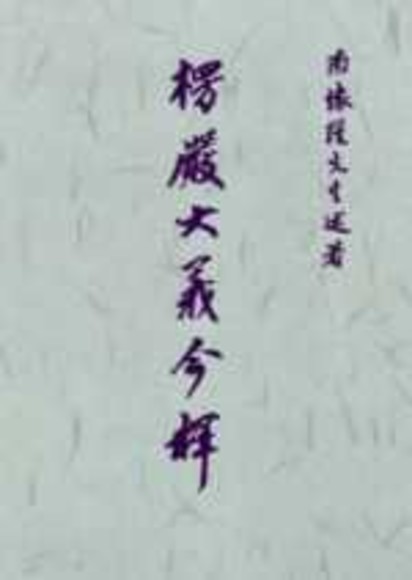 南懷瑾先生述著
楞嚴大義今釋